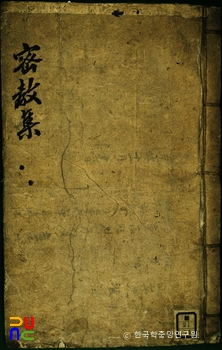 密教集
© 한국학중앙연구원